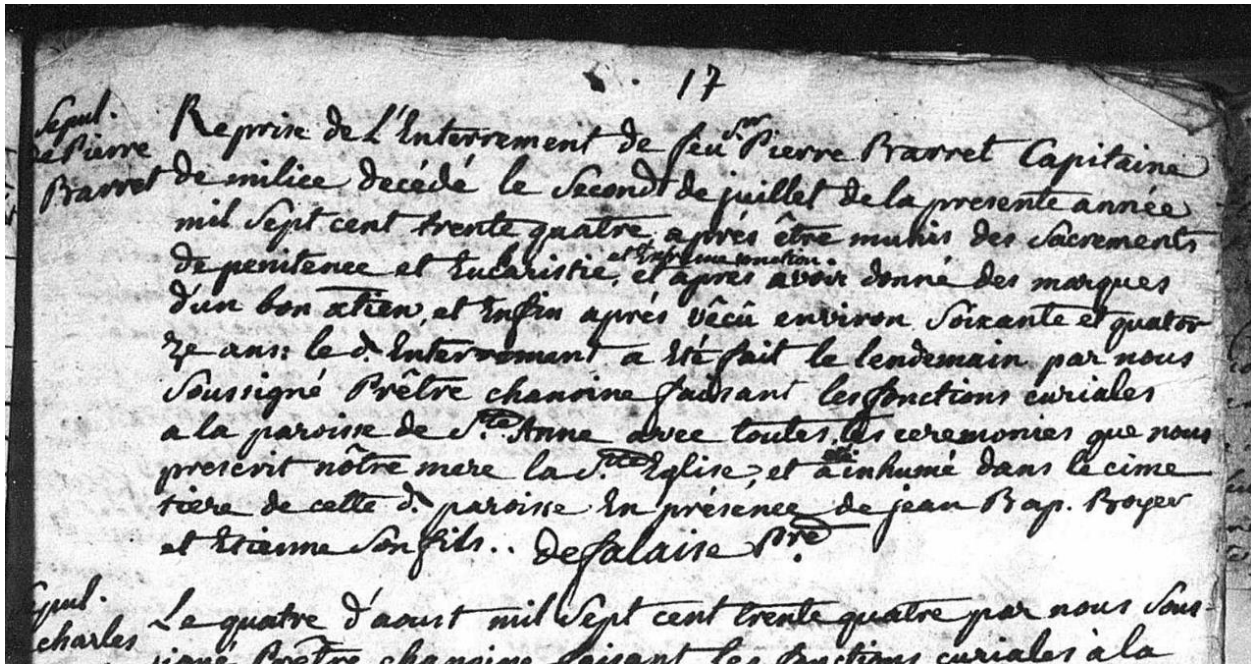 17
Sepul.
de Pierre
Barret
Reprise de L'Enterrement de feu Sr Pierre Barret Capitaine
de milice decédé le Second de juillet de la presente année
mil Sept cent trente quatre aprés être munis des Sacrements
de penitence et Eucaristie, et Extreme onction. et aprés avoir donné des marques
d'un bon xtien, et Enfin aprés vêcû environ Soixante et quator
ze ans: le d. Enterrement a Eté fait le lendemain par nous
Soussigné Prêtre chanoine faisant les fonctions curiales
a la paroisse de Ste Anne avec toutes les ceremonies que nous
prescrit nôtre mere la Ste Eglise, et a été inhumé dans le cime
tiere de cette d. paroisse En présence de jean Bap. Boyer
et Etienne Son fils.. de falaise Ptre
Sepul.
charles
Le quatre d'aoust mil Sept cent trente quatre par nous Sous-
signé Prêtre chanoine faisant les fonctions curiales à la